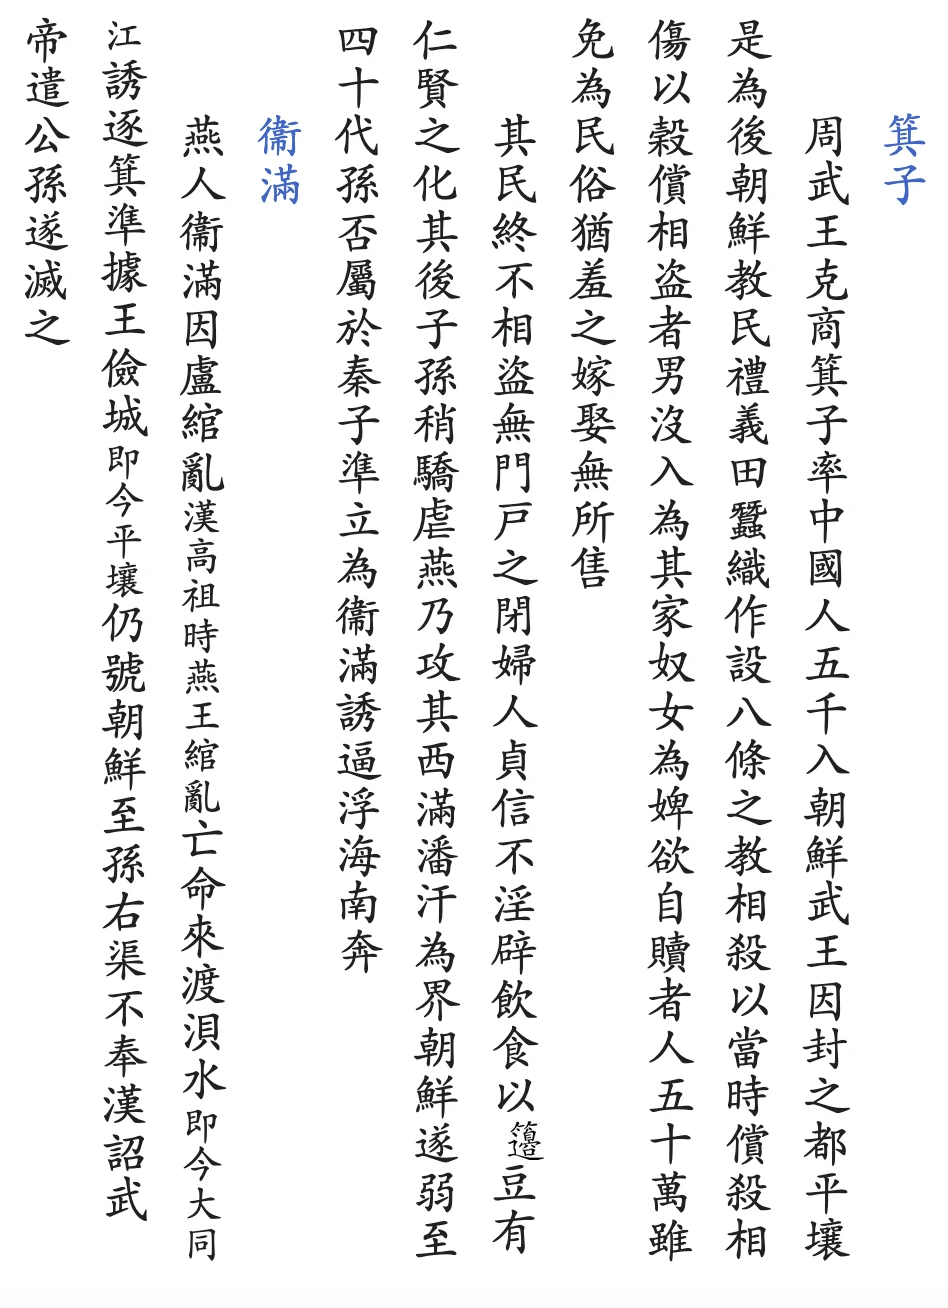 箕子
周武王克商箕子率中國人五千入朝鮮武王因封之都平壤
是為後朝鮮教民禮義田蠶織作設八條之教相殺以當時償殺相
傷以穀償相盜者男沒入為其家奴女為婢欲自贖者人五十萬雖
免為民俗猶羞之嫁娶無所售
其民終不相盜無門戸之閉婦人貞信不淫辟飲食以籩豆有
仁賢之化其後子孫稍驕虐燕乃攻其西滿潘汗為界朝鮮遂弱至
四十代孫否屬於秦子準立為衞滿誘逼浮海南奔
衞滿
燕人衞滿因盧綰亂漢高祖時燕王綰亂亡命來渡浿水即今大同
江誘逐箕準據王儉城即今平壤仍號朝鮮至孫右渠不奉漢詔武
帝遣公孫遂滅之